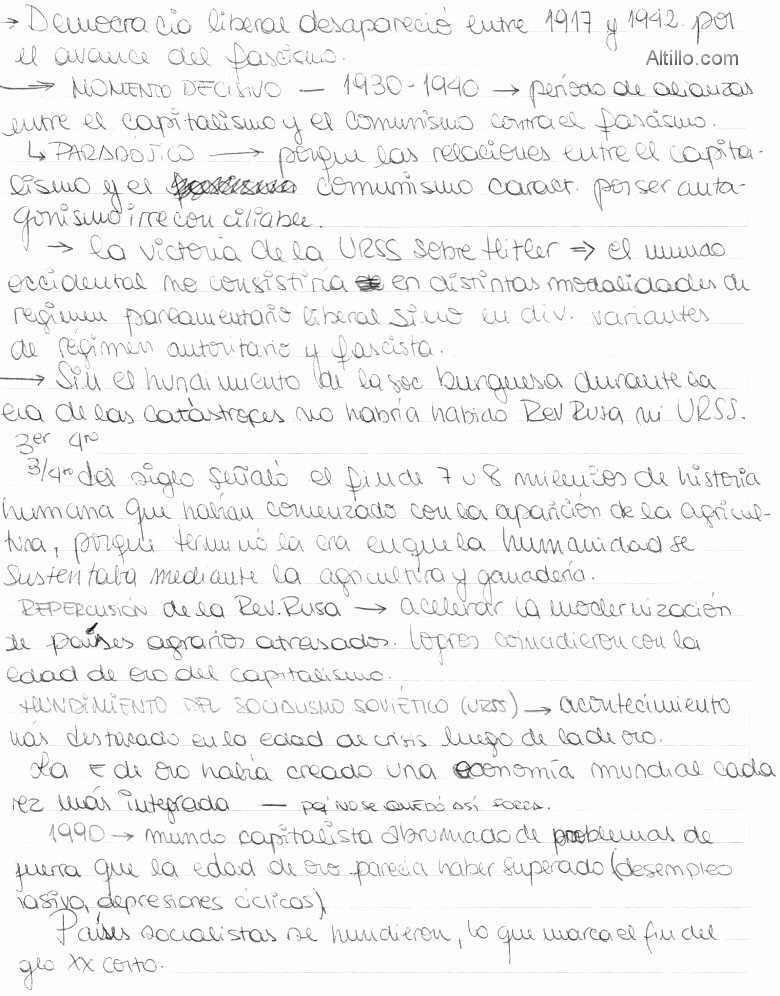 → Democracia liberal desapareció entre 1917 y 1942 por
el avance del fascismo.
Altillo.com
→ MOMENTO DECISIVO — 1930-1940 → período de alianzas
entre el capitalismo y el comunismo contra el fascismo.
↳ PARADOJICO → porque las relaciones entre el capita-
lismo y el comunismo caract. por ser anta-
gonismo irreconciliable.
→ la victoria de la URSS sobre Hitler ⇒ el mundo
occidental no consistiría en distintas modalidades de
régimen parlamentario liberal sino en div. variantes
de régimen autoritario y fascista.
→ Sin el hundimiento de la soc burguesa durante la
era de las catástrofes no habría habido Rev Rusa ni URSS.
3er 4to
3/4to del siglo señaló el fin de 7 u 8 milenios de historia
humana que habían comenzado con la aparición de la agricul-
tura, porque terminó la era en que la humanidad se
sustentaba mediante la agricultura y ganadería.
REPERCUSIÓN de la Rev. Rusa → acelerar la modernización
de países agrarios atrasados. Logros coincidieron con la
edad de oro del capitalismo.
HUNDIMIENTO DEL SOCIALISMO SOVIÉTICO (URSS) → acontecimiento
más destacado en la edad de crisis luego de la de oro.
La E de oro había creado una economía mundial cada
vez más integrada — NO SE QUEDÓ ASÍ
1990 → mundo capitalista abrumado de problemas de
guerra que la edad de oro parecía haber superado (desempleo
masivo, depresiones cíclicas)
Países socialistas se hundieron, lo que marca el fin del
glo XX corto.